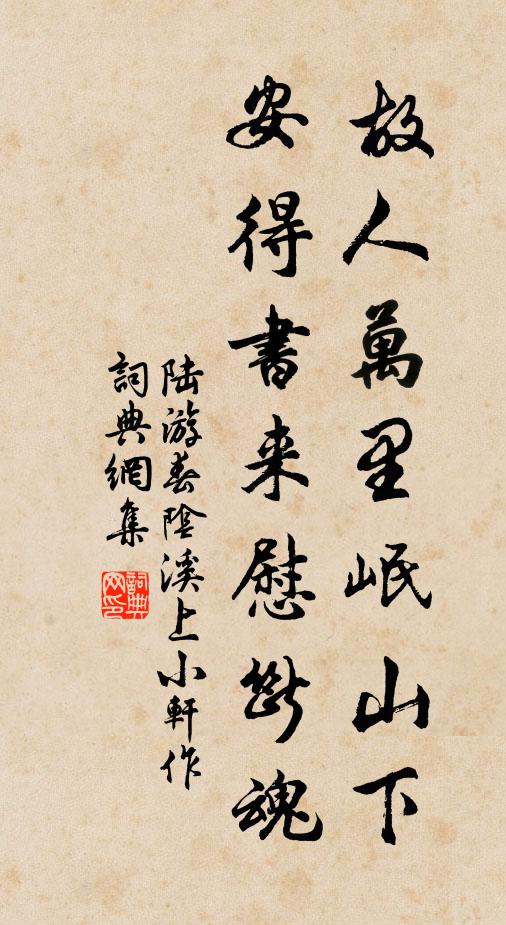 故人萬里岷山下
安得書来慰斷魂
陆游春陰溪上小軒作
詞典網集
詞典网印